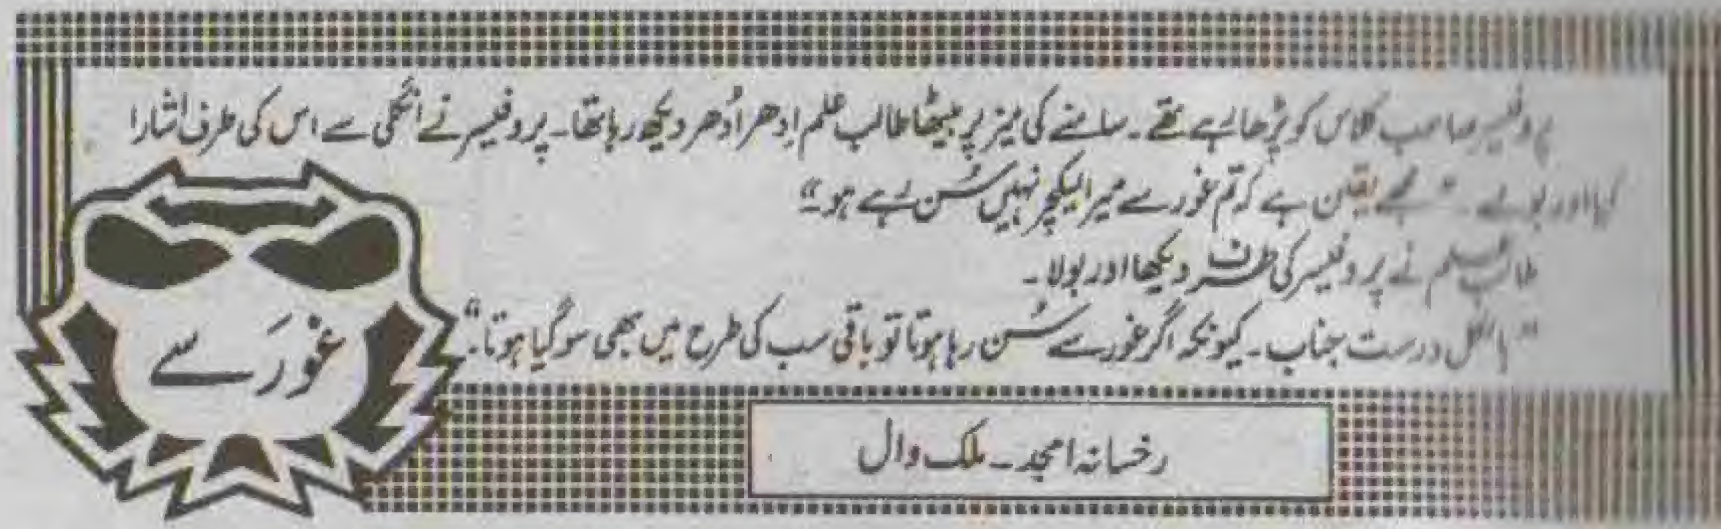 غور سے
پروفیسر صاحب کلاس کو پڑھا رہے تھے۔ سامنے کی میز پر بیٹھا طالب علم اِدھر اُدھر دیکھ رہا تھا۔ پروفیسر نے انگلی سے اس کی طرف اشارا
کیا اور بولے۔ "مجھے یقین ہے کہ تم غور سے میرا لیکچر نہیں سُن رہے ہو"
طالب علم نے پروفیسر کی طرف دیکھا اور بولا۔
"بالکل درست جناب۔ کیونکہ اگر غور سے سُن رہا ہوتا تو باقی سب کی طرح میں بھی سو گیا ہوتا۔"
رخسانہ امجد۔ ملک وال